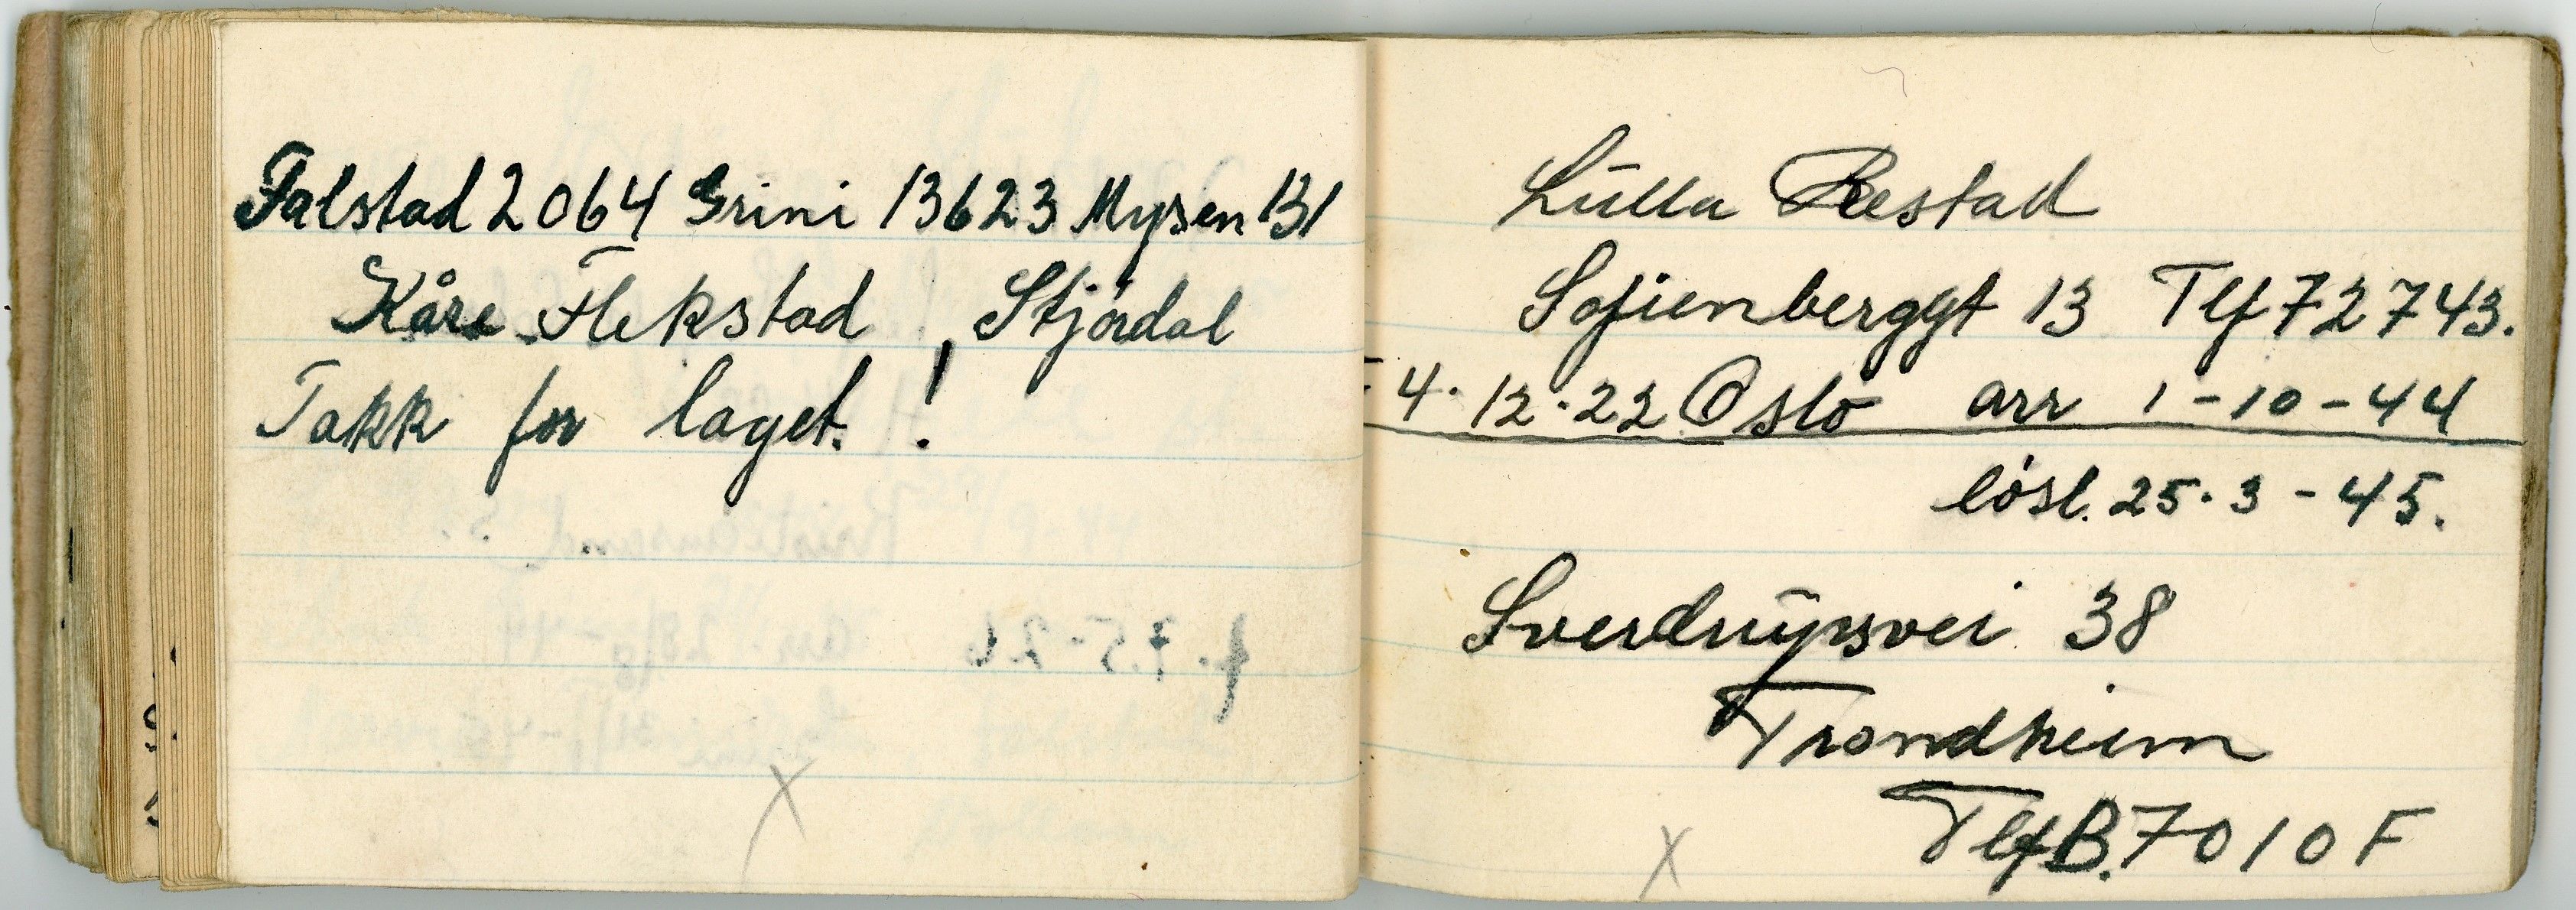 Falstad 2064 Grini 13623 Mysen 131
Kåre Flekstad, Stjördal
Takk for laget. !
Lūlla Restad
Sofienberggt 13 Tlf 72743.
4.12.22 Oslo arr 1-10-44
lösl. 25.3-45.
Sverdrūpsvei 38
Trondheim
Tlf B.7010 F